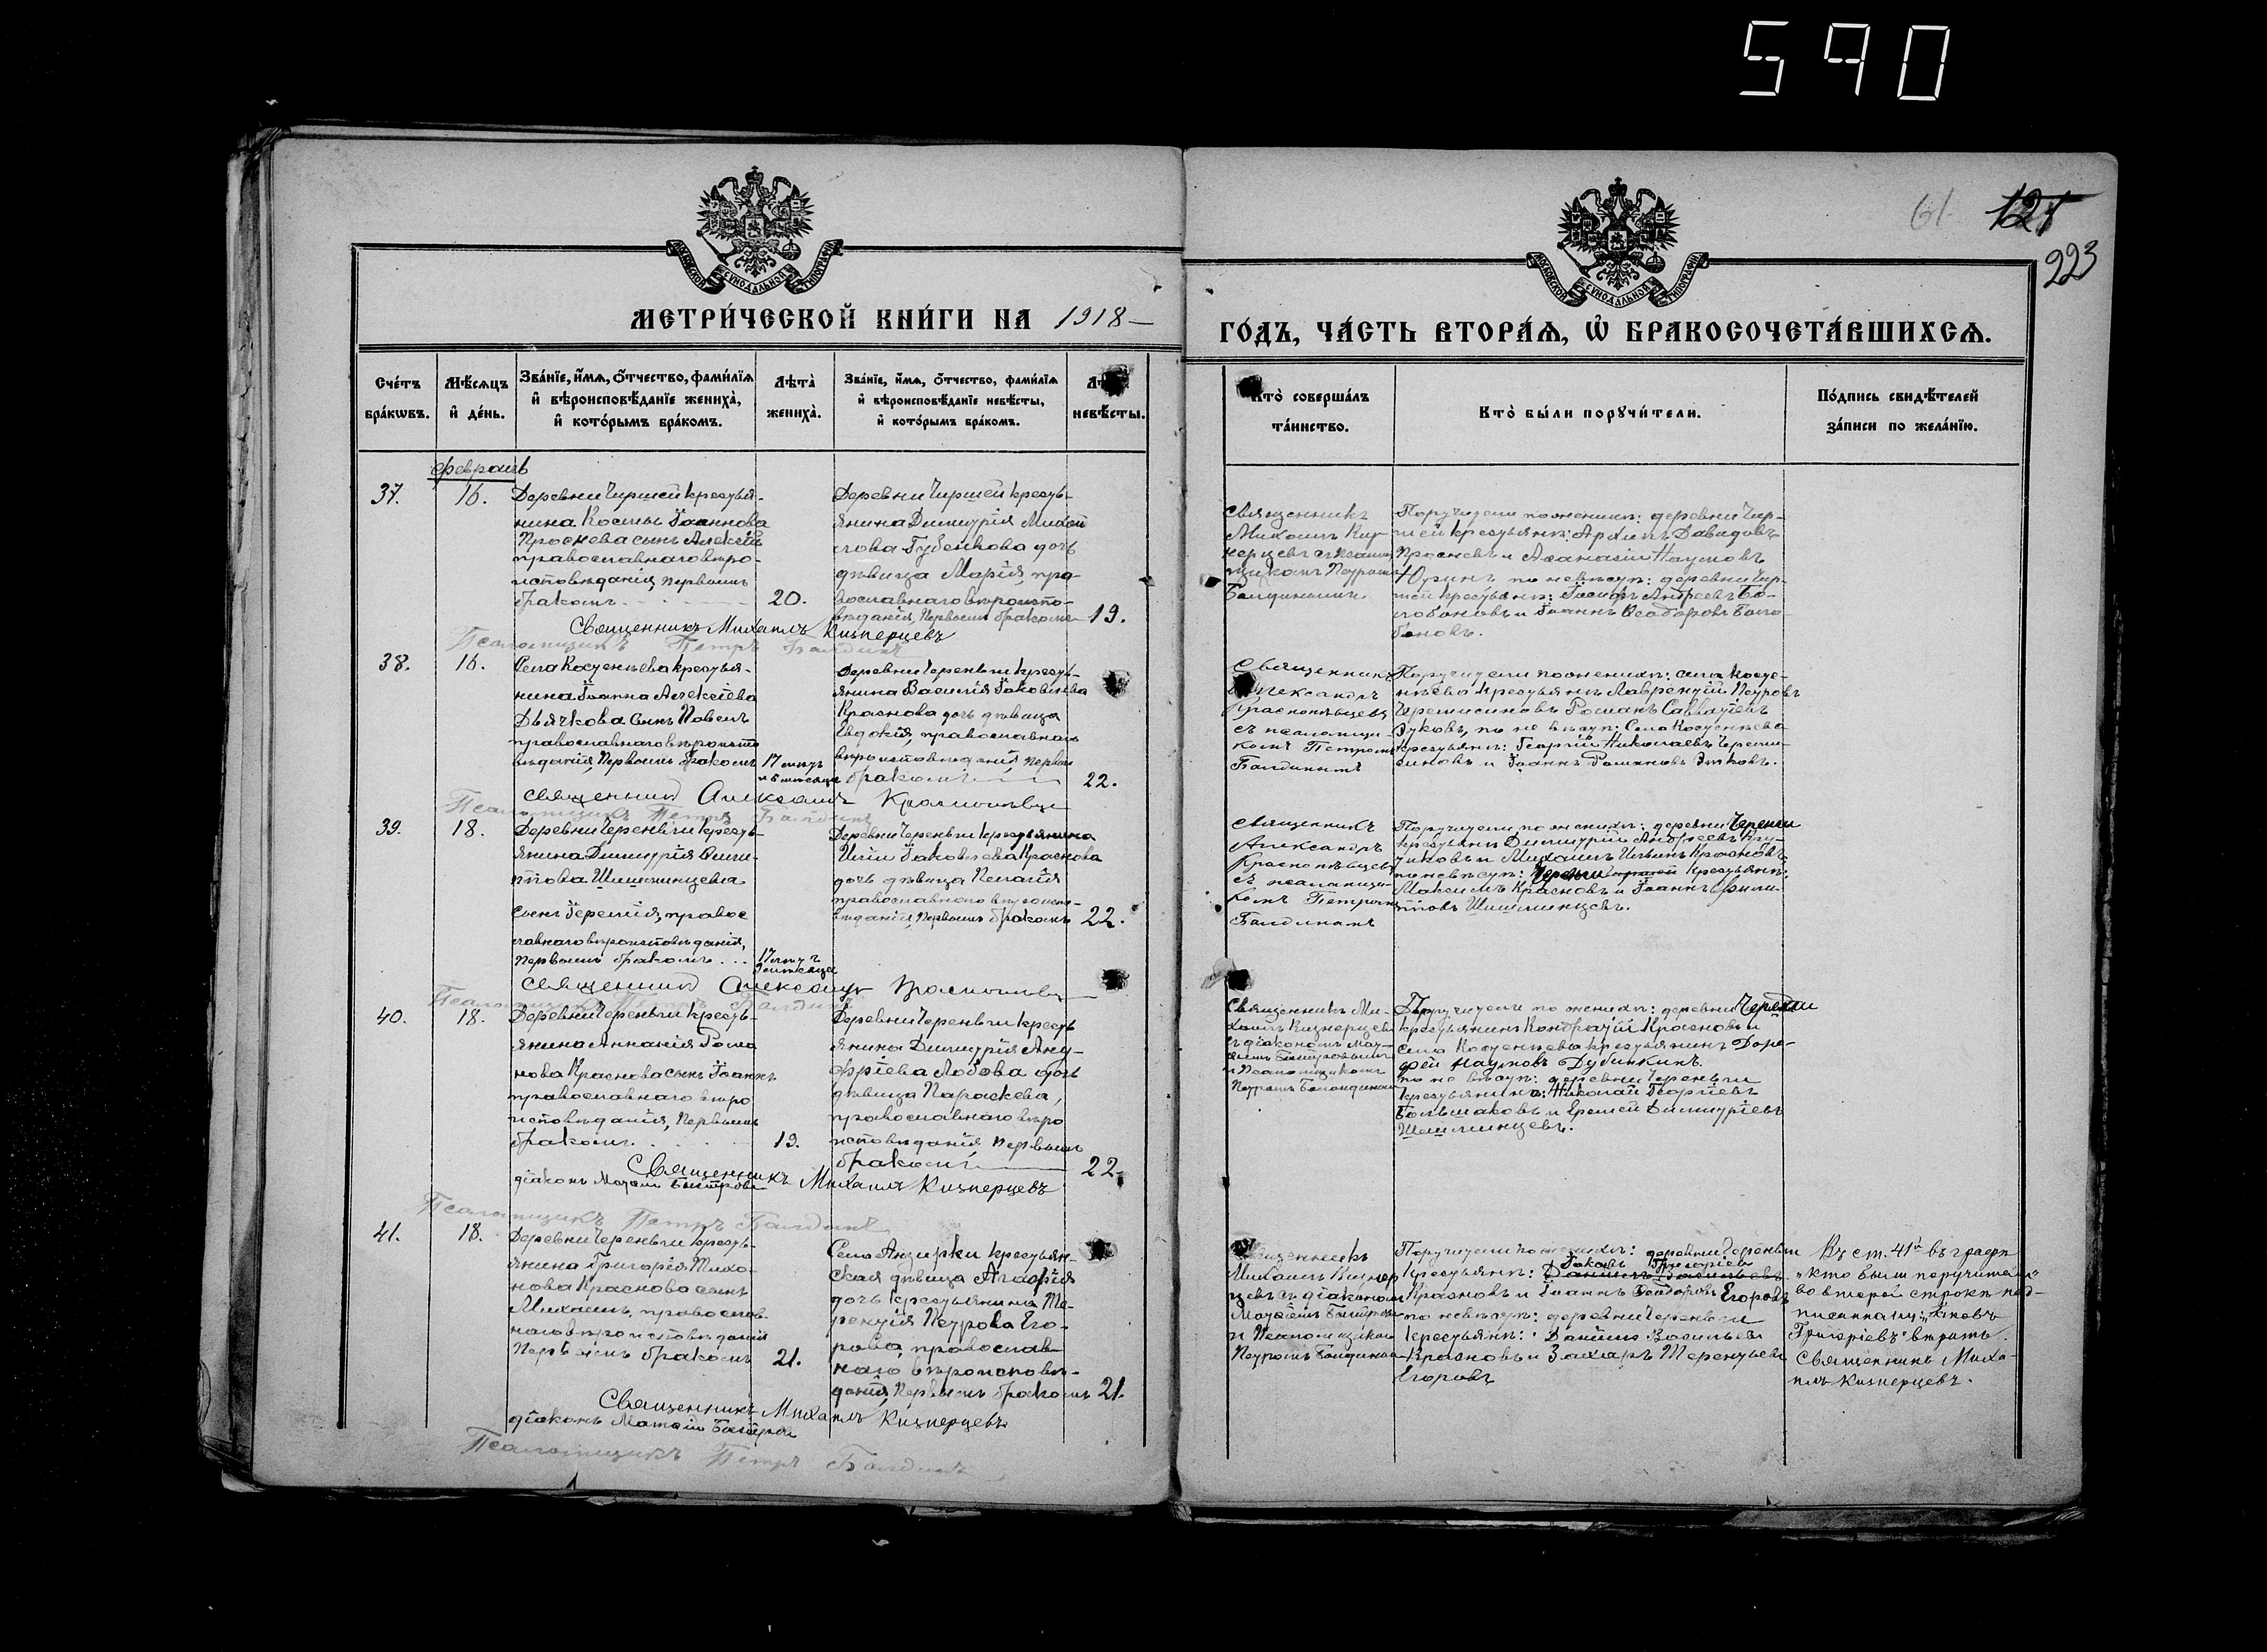 590
61 121
223
МОСКОВСКОЙ СѴНОДАЛЬНОЙ ТИПОГРАФІИ
МОСКОВСКОЙ СѴНОДАЛЬНОЙ ТИПОГРАФІИ
МЕТРИ́ЧЕСКОЙ КНИ́ГИ НА 1918
ГО́ДЪ, ЧА́СТЬ ВТОРА́Ѧ, Ѡ҆ БРАКОСОЧЕТА́ВШИХСѦ.
Сче́тъ
бра́кѡвъ.
Мѣ́сѧцъ
и҆ де́нь.
Зва́нїе, и҆́мѧ, ѻ҆́тчество, фами́лїѧ
и҆ вѣроисповѣ́данїе жениха̀,
и҆ кото́рымъ бра́комъ.
Лѣта̀
жениха̀.
Зва́нїе, и҆́мѧ, ѻ҆́тчество, фами́лїѧ
и҆ вѣроисповѣ́данїе невѣ́сты,
и҆ кото́рымъ бра́комъ.
невѣ́сты.
Кто̀ соверша́лъ
та́инство.
Кто̀ бы́ли порꙋчи́тели.
По́дпись свидѣ́телей
за́писи по жела́нїю.
Февраль
37.
16.
Деревни Чиршей крестья-
нина Космы Іоаннова
Проснева сынъ Алексій
православнаго вѣро-
исповѣданія, первымъ
бракомъ
20.
Деревни Чиршей кресть-
янина Димитрія Михай
лова Губенкова дочь
дѣвица Марія, пра-
вославнаго вѣроиспо-
вѣданія, первымъ бракомъ
19.
Священникъ
Михаилъ Киз-
нерцевъ съ псалом
щикомъ Петромъ
Балдинымъ
Поручители по женихѣ: деревни Чир-
шей крестьяне: Архипъ Давидовъ
Просневъ и Аѳанасій Наумовъ
Юринъ, по невѣстѣ: деревни Чир-
шей крестьяне: Іосифъ Андреевъ Бо-
лобановъ и Іоаннъ Ѳеодоровъ Боло
бановъ.
Священникъ Михаилъ Кизнерцевъ
Псаломщикъ Петръ Балдинъ
38.
16.
Села Костенѣева крестья-
нина Іоанна Алексіева
Дьячкова сынъ Павелъ
православнаго вѣроиспо
вѣданія, первымъ бракомъ
17 лѣтъ
Деревни Череньги кресть-
янина Василія Іаковлева
Краснова дочь дѣвица
Евдокія, православнаго
вѣроисповѣданія, первым
бракомъ
22.
Священникъ
Александръ
Краснопѣвцевъ
съ псаломщи-
комъ Петромъ
Балдинымъ
Поручители по женихѣ: села Косте-
нѣева крестьяне Лаврентій Петровъ
Черемисиновъ Романъ Савватіевъ
Зуковъ, по невѣстѣ: Села Костенѣева
крестьяне: Георгій Николаевъ Череми-
синовъ и Іоаннъ Романовъ Зуковъ.
Священникъ Александръ Краснопѣвцев
Псаломщикъ Петръ Балдинъ
39.
18.
Деревни Череньги кресть-
янина Димитрія Фили-
ппова Шишминцева
сынъ Іеремія, правос
лавнаго вѣроисповѣданія,
первымъ бракомъ
17 лѣтъ
Деревни Череньги крестьянина
Иліи Іаковлева Краснова
дочь дѣвица Пелагія
православнаго вѣроиспо-
вѣданія, первымъ бракомъ
22.
Священникъ
Александръ
Краснопѣвцевъ
съ псаломщи-
комъ Петромъ
Балдинымъ
Поручители по женихѣ: деревни Череньги
крестьяне Димитрій Андреевъ
и Михаилъ Ильинъ Красновъ,
по невѣстѣ: Череньги крестьяне:
Максимъ Красновъ и Іоаннъ Фили-
пповъ Шишминцевъ.
Священникъ Александръ Краснопѣвцев
Псаломщикъ Петръ Балдинъ
40.
18.
Деревни Череньги кресть-
янина Ананія Рома
нова Краснова сынъ Іоаннъ
православнаго вѣро
исповѣданія, первымъ
бракомъ
19.
Деревни Череньги кресть
янина Димитрія Анд-
ріева Лобова дочь
дѣвица Параскева,
православнаго вѣро
исповѣданія первымъ
бракомъ
22.
Священникъ Ми-
хаилъ Кизнерцевъ
съ діакономъ Мат-
и псаломщикомъ
Петромъ Балдинымъ
Поручители по женихѣ: деревни Череньги
крестьянинъ Кондратій Красновъ и
села Костенеева крестьянинъ Доро-
фей Наумовъ Дубинкинъ.
по невѣстѣ: деревни Череньги
крестьяне: Николай Георгіевъ
Большаковъ и Еремей Димитріевъ
Шишминцевъ.
Священникъ Михаилъ Кизнерцевъ
діаконъ
Псаломщикъ Петръ Балдинъ
41.
18.
Деревни Череньги кресть-
янина Григорія Тихо-
нова Краснова сынъ
Михаилъ, православ-
наго вѣроисповѣданія
первымъ бракомъ
21.
Села Анзирки крестьян-
ская дѣвица Агафія
дочь крестьянина Те-
рентія Петрова Его-
рова, православ-
наго вѣроисповѣ-
данія, первымъ бракомъ
21.
Священникъ
Михаилъ Кизнер
цевъ съ діакономъ
и псаломщиком
Петромъ Балдиным
Поручители по женихѣ: деревни Череньги
Іаковъ Григоріев
крестьяне: Даніилъ Васильевъ
Красновъ и Іоаннъ Ѳеодоровъ Егоровъ
по невѣстѣ: деревни Череньги
крестьяне: Даніилъ Васильевъ
Красновъ и Захаръ Терентьевъ
Егоровъ
Въ ст. 41й въ графѣ
„кто были поручители“
во второй строкѣ над-
писанному: „Іаковъ
Григоріевъ“ вѣрить.
Священникъ Миха-
илъ Кизнерцевъ.
Священникъ Михаилъ Кизнерцевъ
діаконъ
Псаломщикъ Петръ Балдинъ